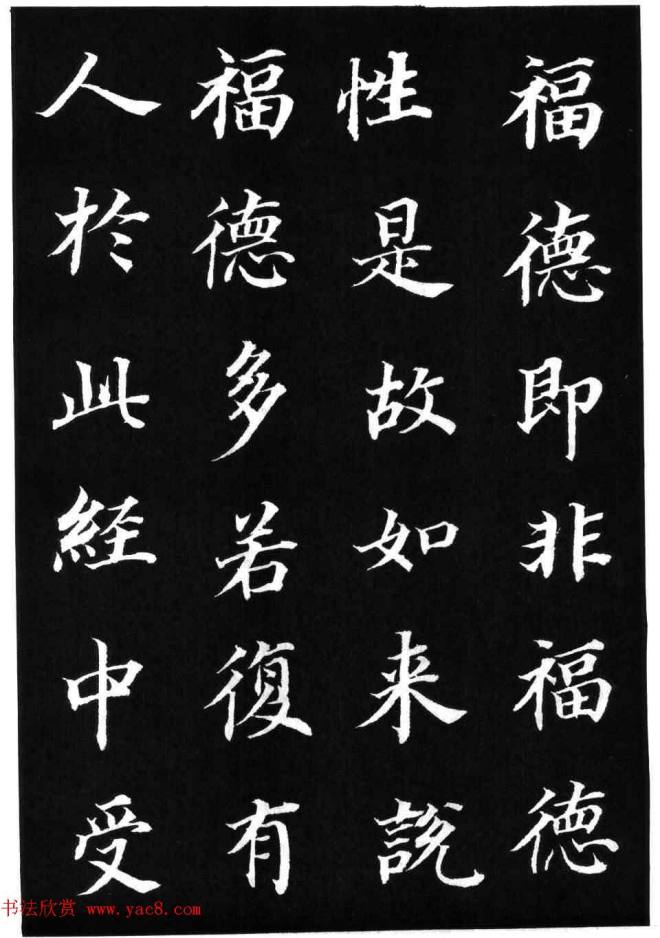 福德即非福德
性是故如来説
福德多若復有
人於此経中受
书法欣赏 www.yac8.com